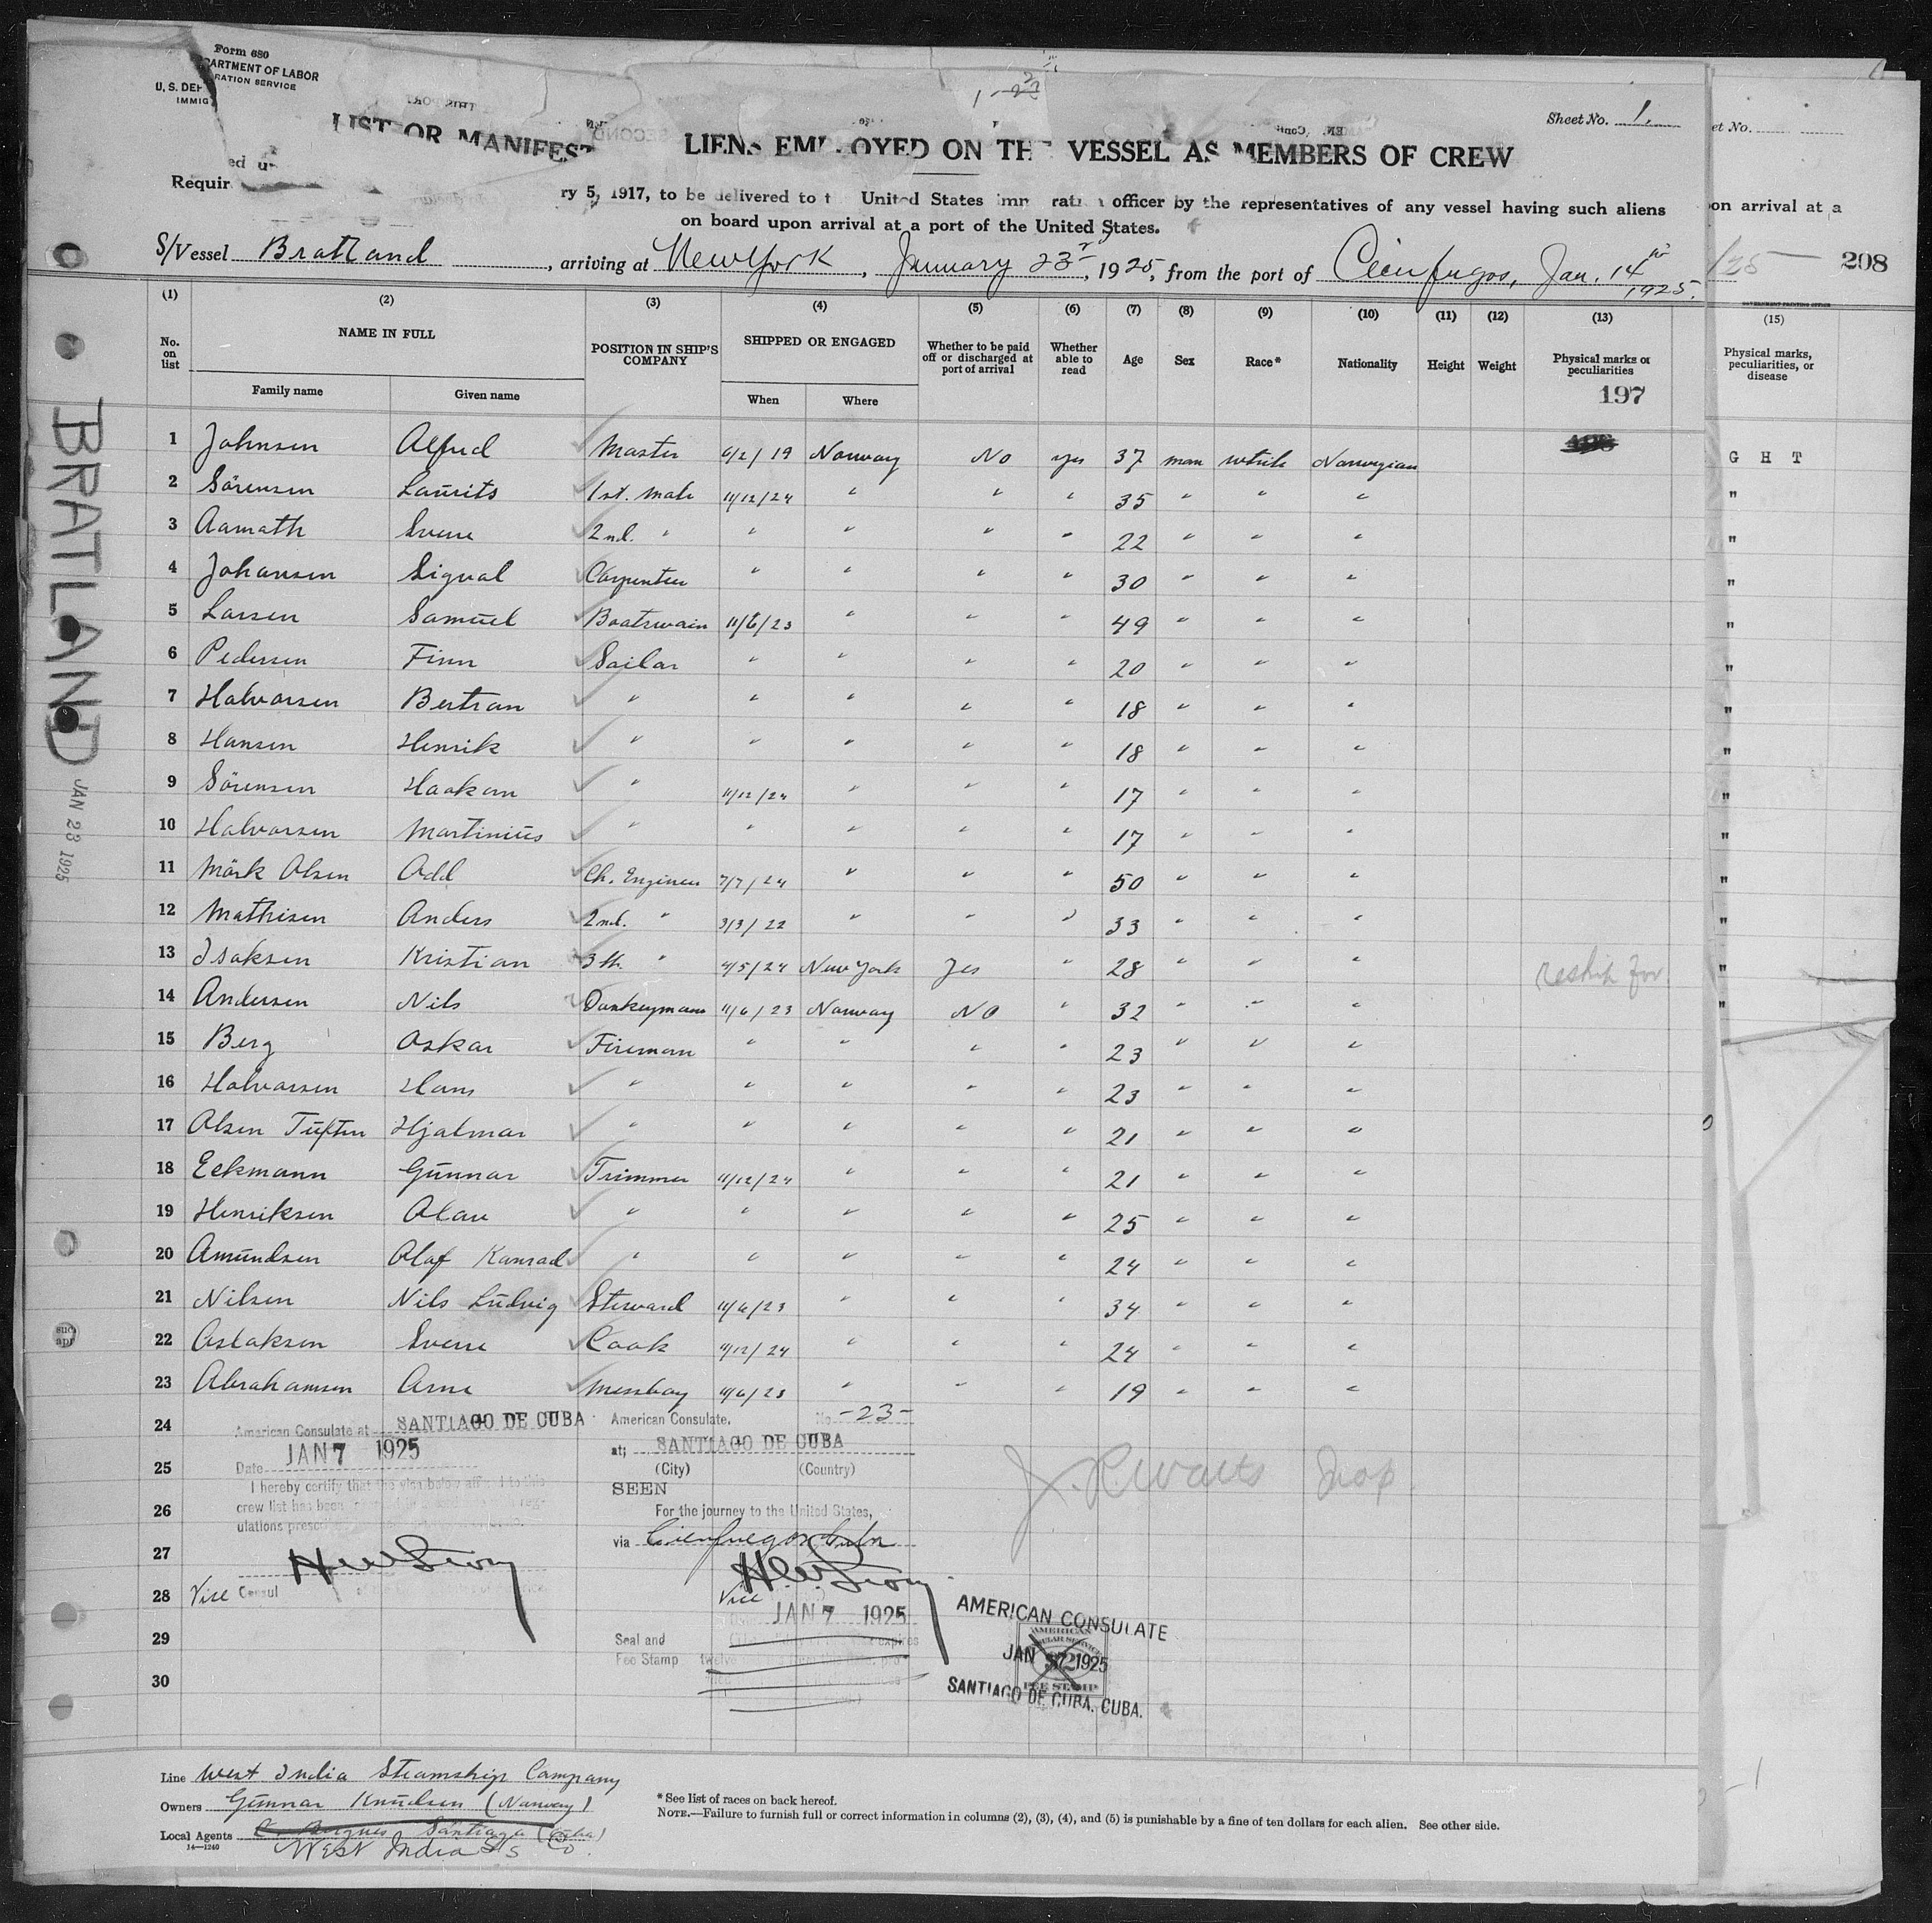 Form 680
U. S. DEP ARTMENT OF LABOR
IMMIG RATION SERVICE
1 - 23
Sheet No. 1.
et No.
LIST OR MANIFEST LIENS EMPLOYED ON THE VESSEL AS MEMBERS OF CREW
Requir ed u ry 5, 1917, to be delivered to t United States imm rati officer by the representatives of any vessel having such aliens
on board upon arrival at a port of the United States.
on arrival at a
S/Vessel Bratland, arriving at New York, January 23rd, 1925, from the port of Cienfuegos, Jan. 14th 1925.
/25 208
(1) (2) (3) (4) (5) (6) (7) (8) (9) (10) (11) (12) (13) (15)
No. on list NAME IN FULL POSITION IN SHIP'S COMPANY SHIPPED OR ENGAGED Whether to be paid off or discharged at port of arrival Whether able to read Age Sex Race* Nationality Height Weight Physical marks or peculiarities Physical marks, peculiarities, or disease
Family name Given name When Where
197
1 Johnsen Alfred Master 6/2/19 Norway No yes 37 man white Norwegian G H T
2 Sörensen Laurits 1st. mate 11/12/24 " " " 35 " " " "
3 Aamath Sverre 2nd. " " " " " 22 " " " "
4 Johansen Sigval Carpenter " " " " 30 " " " "
5 Larsen Samuel Boatswain 11/6/23 " " " 49 " " " "
6 Pedersen Finn Sailor " " " " 20 " " " "
7 Halvorsen Bertran " " " " " 18 " " " "
8 Hansen Henrik " " " " " 18 " " " "
9 Sörensen Haakon " 11/12/24 " " " 17 " " " "
10 Halvorsen Martinius " " " " " 17 " " " "
11 Mörk Olsen Odd Ch. Engineer 7/7/24 " " " 50 " " " "
12 Mathisen Anders 2nd. " 3/3/22 " " " 33 " " " "
13 Isaksen Kristian 3th. " 4/5/24 New York Yes " 28 " " " reship for. "
14 Andersen Nils Donkeyman 11/6/23 Norway No " 32 " " " "
15 Berg Oskar Fireman " " " " 23 " " "
16 Halvorsen Hans " " " " " 23 " " "
17 Olsen Tuften Hjalmar " " " " " 21 " " "
18 Eckmann Gunnar Trimmer 11/12/24 " " " 21 " " "
19 Henriksen Olav " " " " " 25 " " "
20 Amundsen Olaf Konrad " " " " " 24 " " "
21 Nilsen Nils Ludvig Steward 11/6/23 " " " 34 " " "
22 Aslaksen Sverre Cook 11/12/24 " " " 24 " " "
23 Abrahamsen Arne Messboy 11/6/23 " " " 19 " " "
24
25
26
27
28
29
30
American Consulate at SANTIAGO DE CUBA
Date JAN 7 1925
I hereby certify that the visa below affixed to this
crew list has been
ulations
Vice Consul
American Consulate, No. -23-
at; SANTIAGO DE CUBA
(City) (Country)
SEEN
For the journey to the United States,
via Cienfuegos Cuba
Vice
JAN 7 1925
Seal and
Fee Stamp
Insp.
AMERICAN CONSULATE
JAN 7 1925
SANTIAGO DE CUBA, CUBA.
AMERICAN
FEE STAMP
Line West India Steamship Company
Owners Gunnar Knudsen (Norway)
Local Agents Santiago (Cuba)
West India S/S Co.
14—1240
* See list of races on back hereof.
NOTE.—Failure to furnish full or correct information in columns (2), (3), (4), and (5) is punishable by a fine of ten dollars for each alien. See other side.
BRATLAND
JAN 23 1925